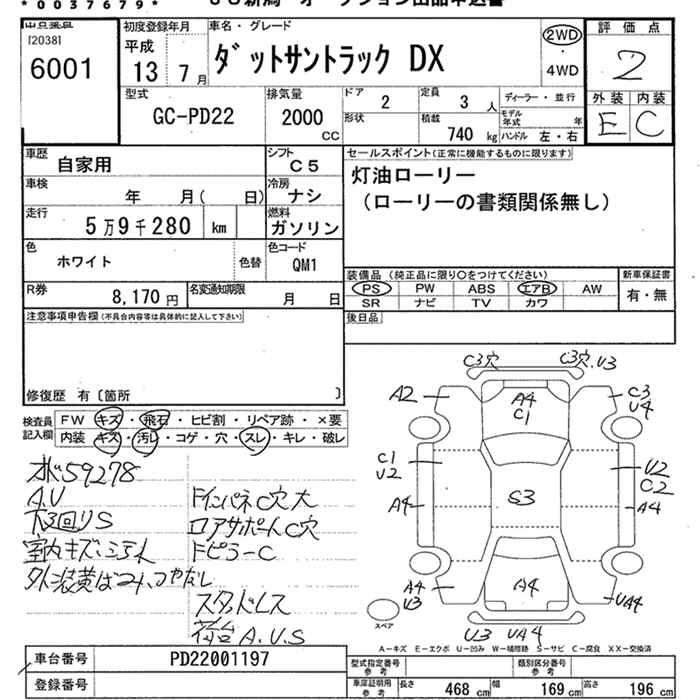 *0037679*
出品票
[2038]
6001
初度登録年月
平成
13年 7月
車名・グレード
ダットサントラック DX
2WD
・
4WD
評価点
2
外装 内装
E C
型式
GC-PD22
排気量
2000
CC
ドア 2
定員 3 人
形状
積載 740 kg
ディーラー・並行
モデル年式 年
ハンドル 左・右
車歴 自家用
シフト C5
車検 年 月( 日)
冷房 ナシ
走行 5万9千280 km
燃料 ガソリン
色 ホワイト
色替
色コード QM1
R券 8,170 円
名変通知期限 月 日
セールスポイント(正常に機能するものに限ります)
灯油ローリー
(ローリーの書類関係無し)
装備品 (純正品に限り○をつけてください)
PS PW ABS エアB AW
SR ナビ TV カワ
新車保証書
有・無
後日品
注意事項申告欄(不具合内容等は具体的に記入して下さい)
修復歴 有〔箇所 〕
検査員記入欄
FW キズ・飛石・ヒビ割・リペア跡・×要
内装 キズ・汚レ・コゲ・穴・スレ・キレ・破レ
59278
A.U
下3回りS
室内キズ
Fインパネ C穴 大
ロアサポート C穴
Fピラー C
スタッドレス
荷台 A.U.S
C3穴
C3穴.U3
A2
A4
C1
C3
U4
C1
U2
U2
C2
A4
S3
A4
A4
U3
A4
UA4
スペア
U3 UA4
A−キズ E−エクボ U−凹み W−補修跡 S−サビ C−腐食 XX−交換済
車台番号 PD22001197
登録番号
型式指定番号
参考
類別区分番号
参考
車庫証明用
参考
長さ 468 cm 幅 169 cm 高さ 196 cm